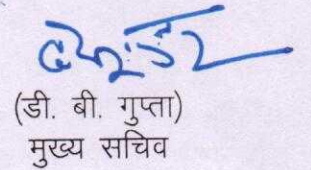 (डी. बी. गुप्ता)
मुख्य सचिव